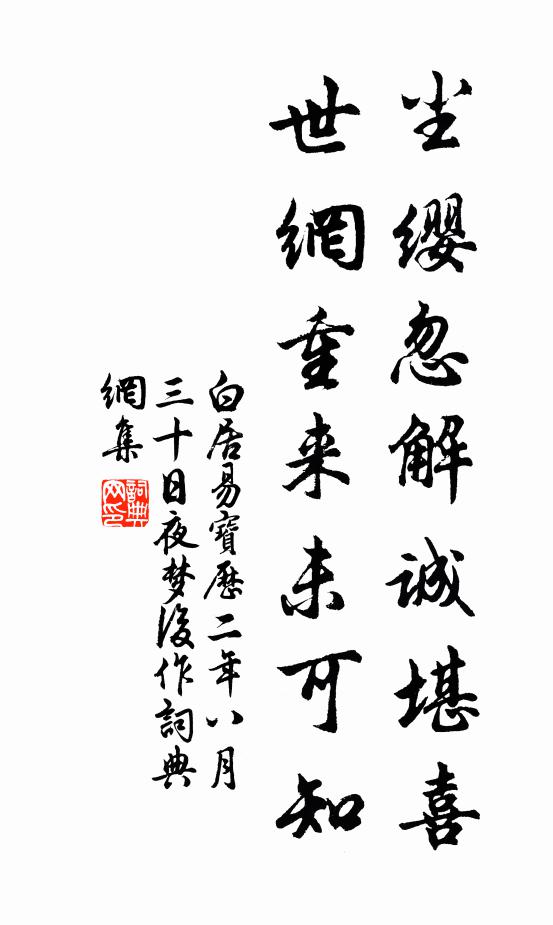 尘纓忽解誠堪喜
世網重来未可知
白居易寶歷二年八月
三十日夜梦後作詞典
網集
詞典網印